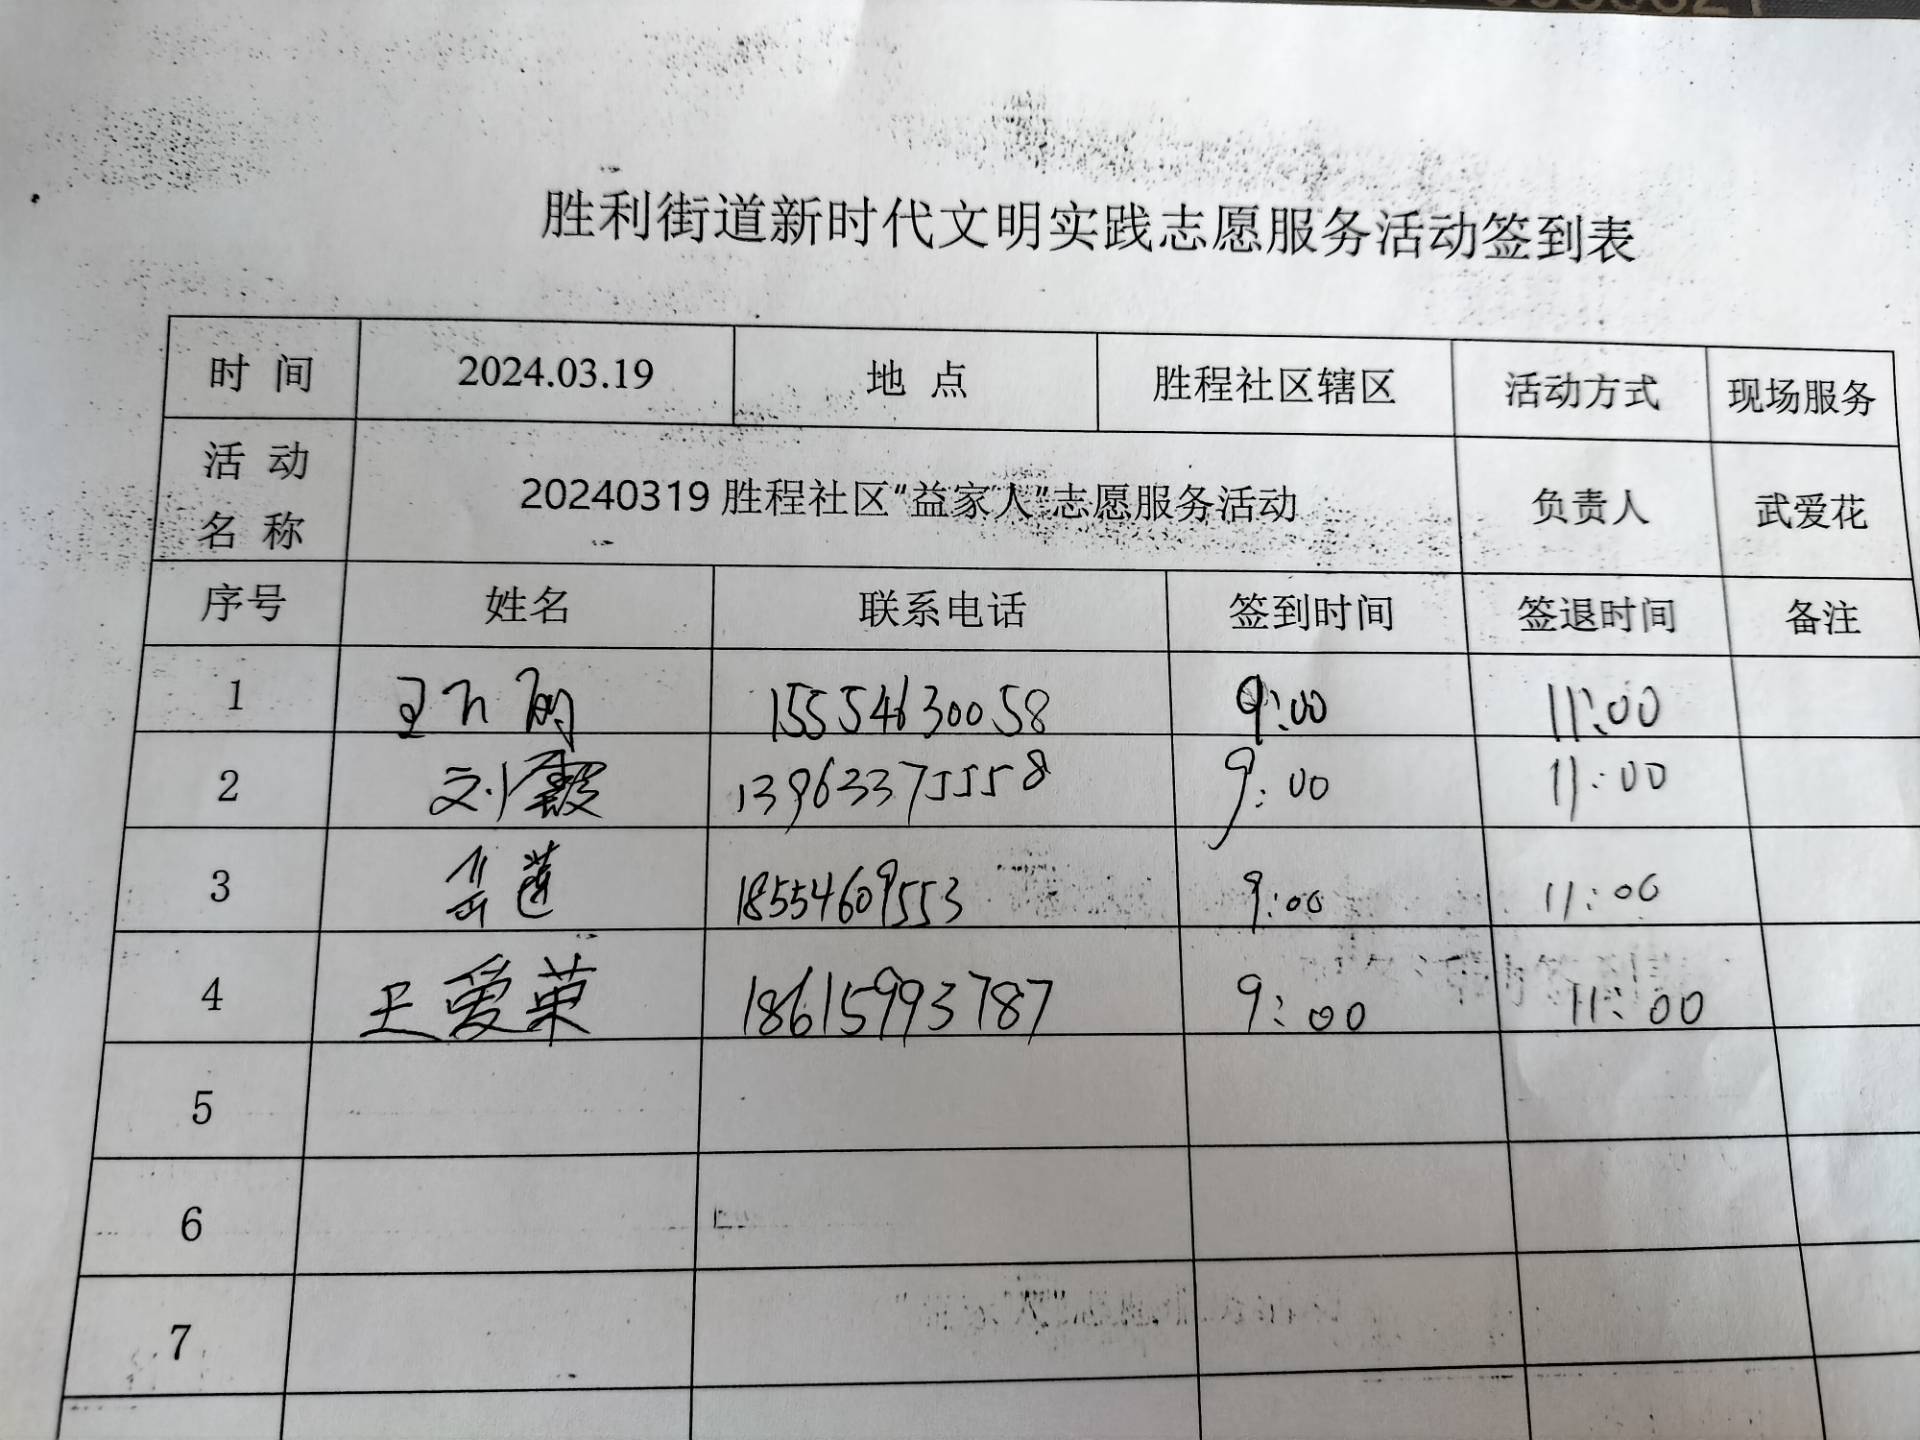 胜利街道新时代文明实践志愿服务活动签到表
时 间 2024.03.19 地 点 胜程社区辖区 活动方式 现场服务
活 动
名 称 20240319胜程社区"益家人"志愿服务活动 负责人 武爱花
序号 姓名 联系电话 签到时间 签退时间 备注
1 王 15554630058 9:00 11:00
2 刘霞 13963375558 9:00 11:00
3 岳莲 18554609553 9:00 11:00
4 王爱荣 18615993787 9:00 11:00
5
6
7